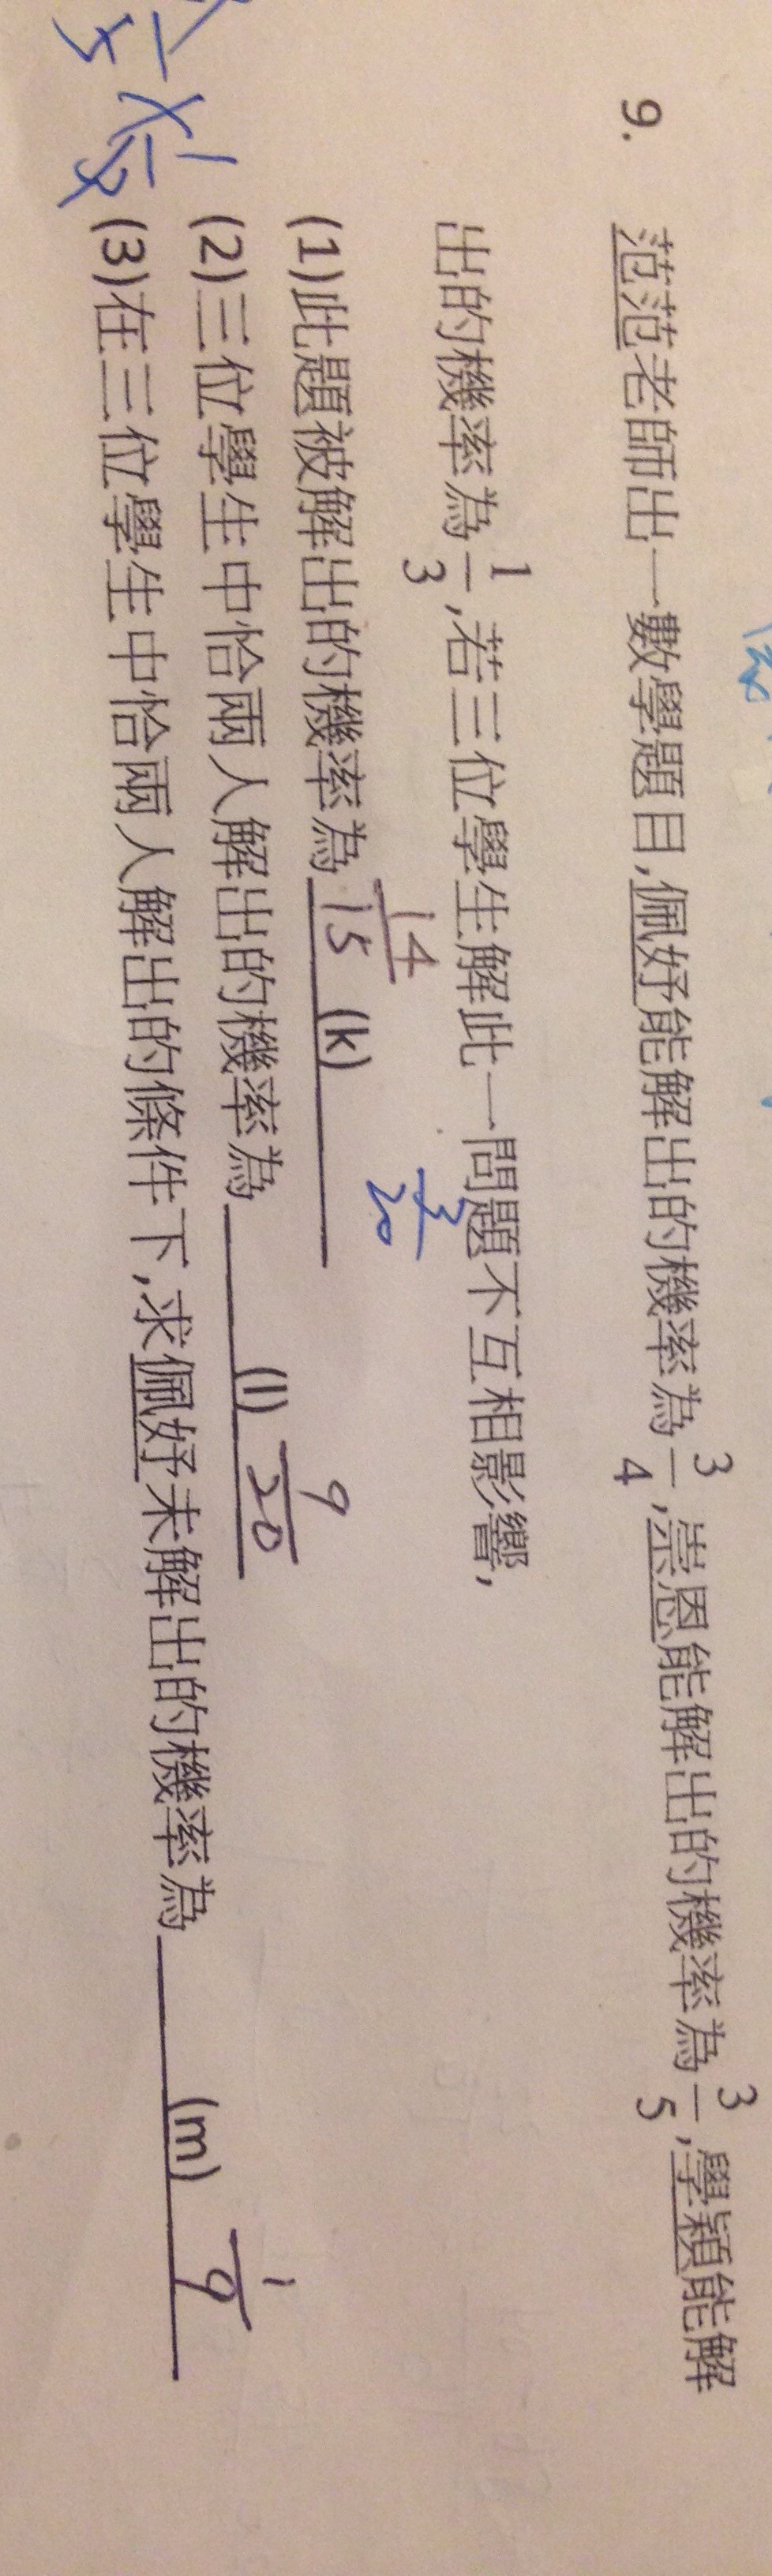 9. 范范老師出一數學題目,佩妤能解出的機率為3/4,崇恩能解出的機率為3/5,學穎能解
出的機率為1/3,若三位學生解此一問題不互相影響,
(1)此題被解出的機率為 14/15 (k)
3/20
(2)三位學生中恰兩人解出的機率為 (l) 9/20
(3)在三位學生中恰兩人解出的條件下,求佩妤未解出的機率為 (m) 1/9